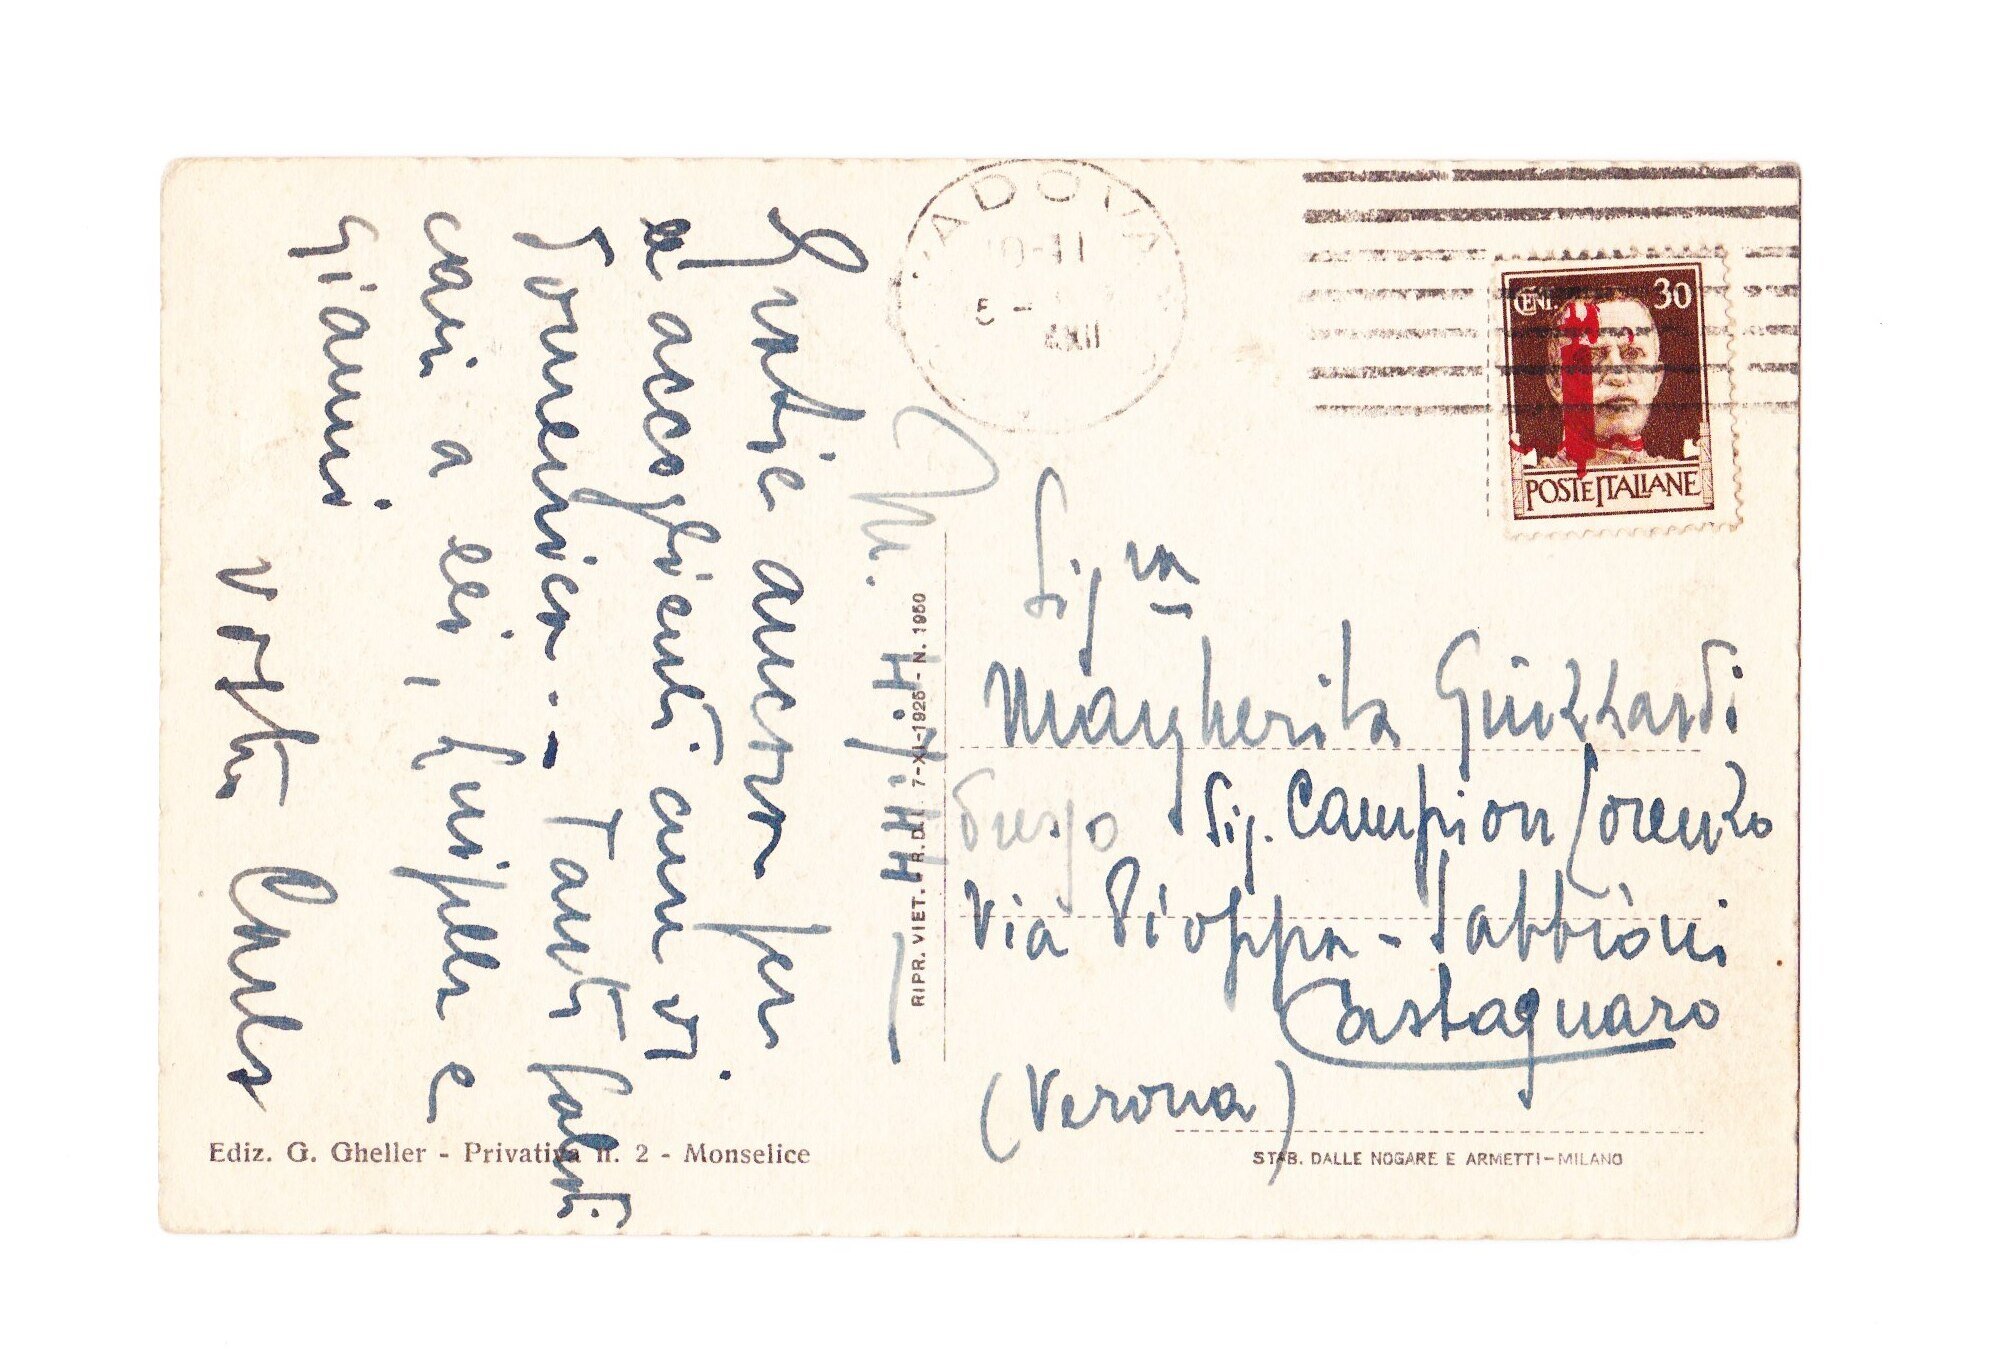 M. 4.7.'44
Grazie ancora per
le accoglienti cure di
Domenica... Tanti saluti
cari a lei, Luisella e
Gianni
Vostro Carlo
PADOVA
10-11
5 -
XXII
CENT. 30
POSTE ITALIANE
Sig.ra
Margherita Guizzardi
presso Sig. Campion Lorenzo
Via Pioppa - Sabbioni
Castagnaro
(Verona)
RIPR. VIET. R. D. 7-XI-1925 - N. 1950
Ediz. G. Gheller - Privativa n. 2 - Monselice
STAB. DALLE NOGARE E ARMETTI-MILANO